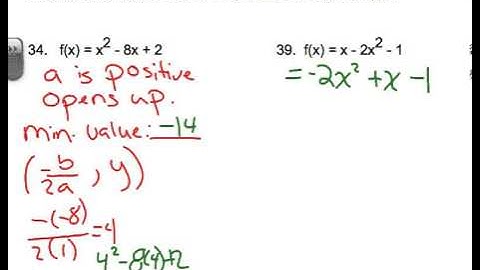 34. f(x) = x² - 8x + 2
a is positive
opens up.
min. value: -14
(-b/2a, y)
-(-8)/2(1) = 4
4² - 8(4) + 2
39. f(x) = x - 2x² - 1
= -2x² + x - 1